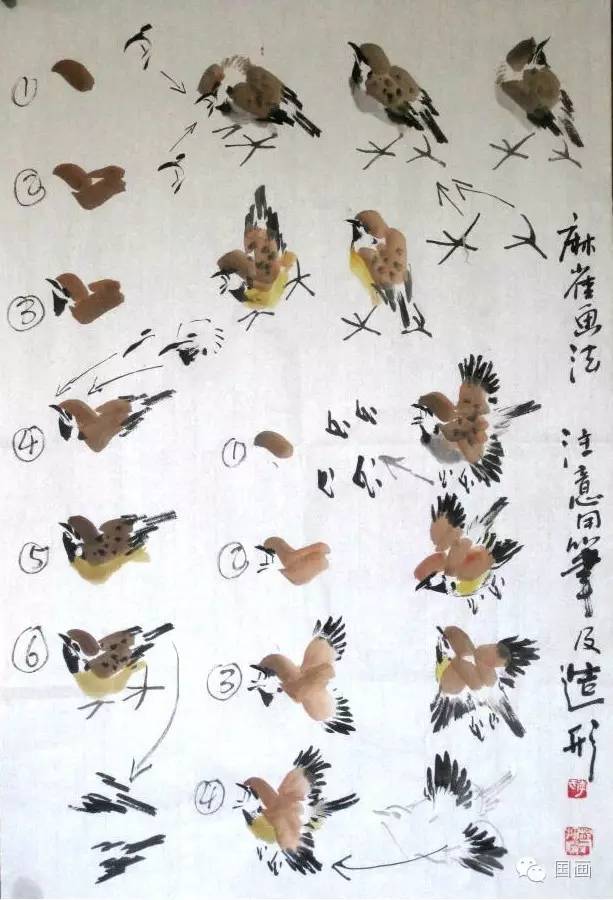 ①
②
③
④
⑤
⑥
①
②
③
④
麻雀画法 注意用笔及造形
国画